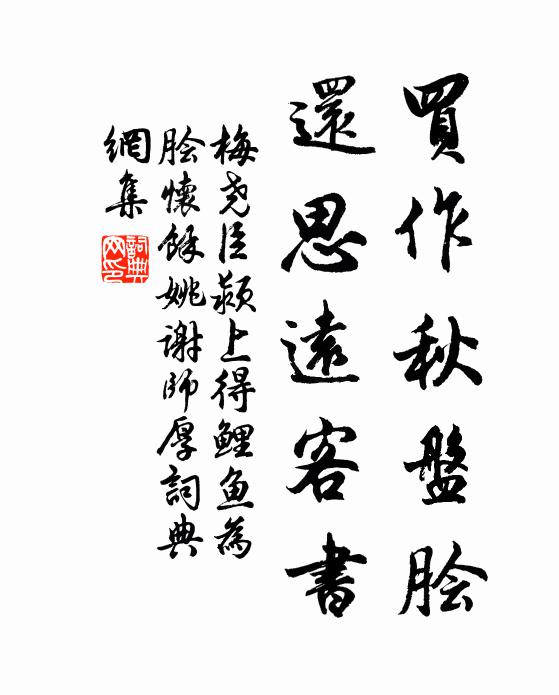 買作秋盤膾
還思遠客書
梅堯臣潁上得鯉魚為
膾懷餘姚謝師厚詞典
網集
詞典網印